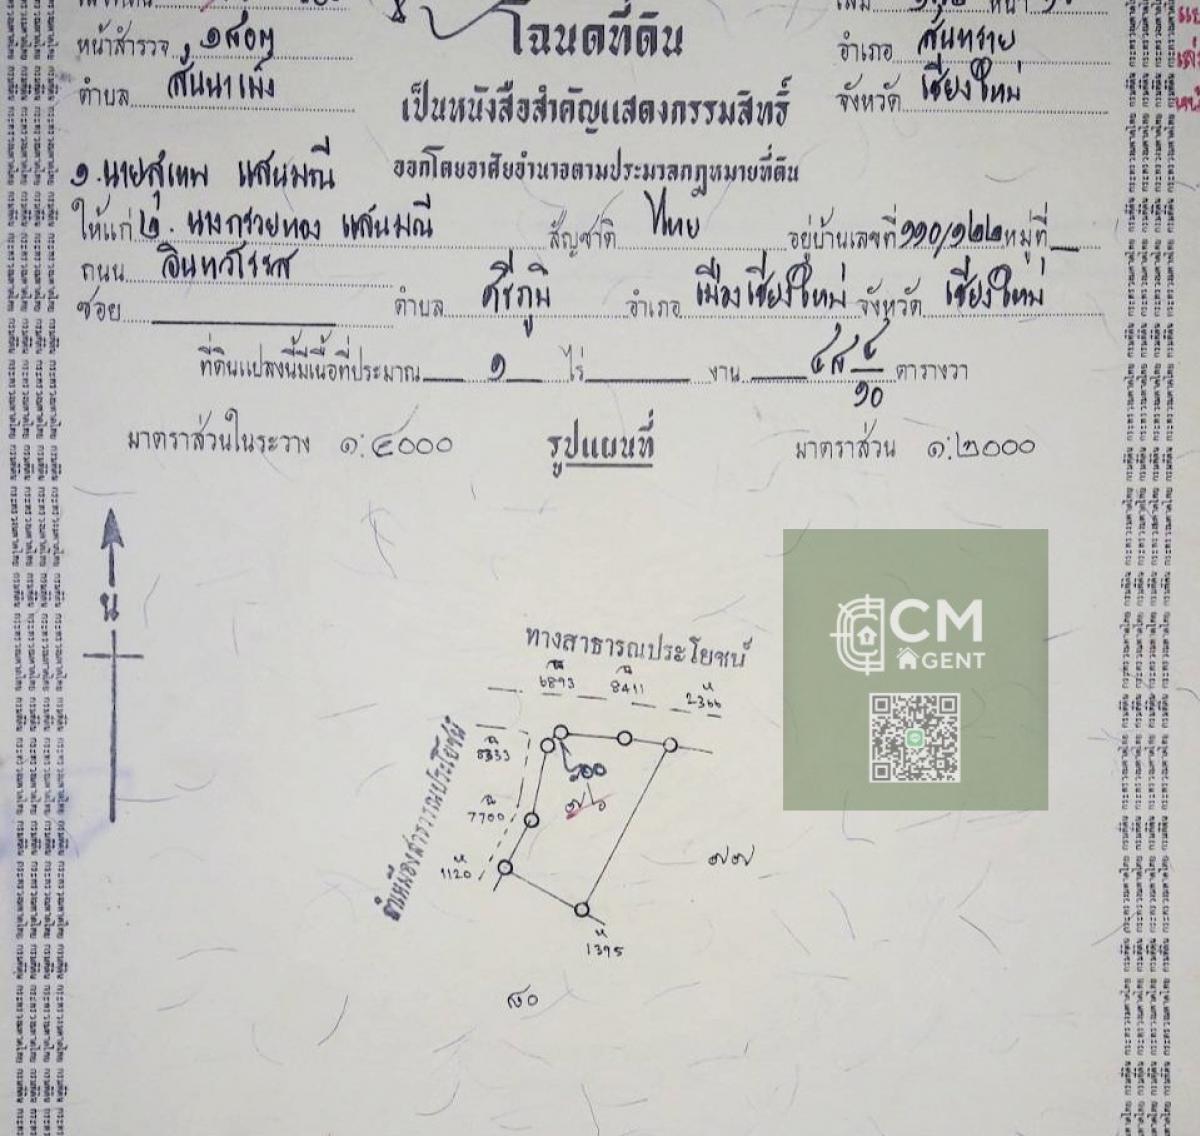 หน้าสำรวจ ๑๙๐๗
ตำบล สันนาเม็ง
โฉนดที่ดิน
อำเภอ สันทราย
จังหวัด เชียงใหม่
เป็นหนังสือสำคัญแสดงกรรมสิทธิ์
ออกโดยอาศัยอำนาจตามประมวลกฎหมายที่ดิน
๑. นายสุเทพ แสนมณี
ให้แก่ ๒. นางกรวยทอง แสนมณี สัญชาติ ไทย อยู่บ้านเลขที่ ๑๑๐/๑๒๒ หมู่ที่
ถนน อินทวโรรส
ซอย ตำบล ศรีภูมิ อำเภอ เมืองเชียงใหม่ จังหวัด เชียงใหม่
ที่ดินแปลงนี้มีเนื้อที่ประมาณ ๑ ไร่ งาน ตารางวา
มาตราส่วนในระวาง ๑:๔๐๐๐ รูปแผนที่ มาตราส่วน ๑:๒๐๐๐
น
CM
AGENT
ทางสาธารณประโยชน์
6893 8411 2366
ลำเหมืองสาธารณประโยชน์
8353
๑๐๐
๗๖
7700
1120
๗๗
1395
๘๐